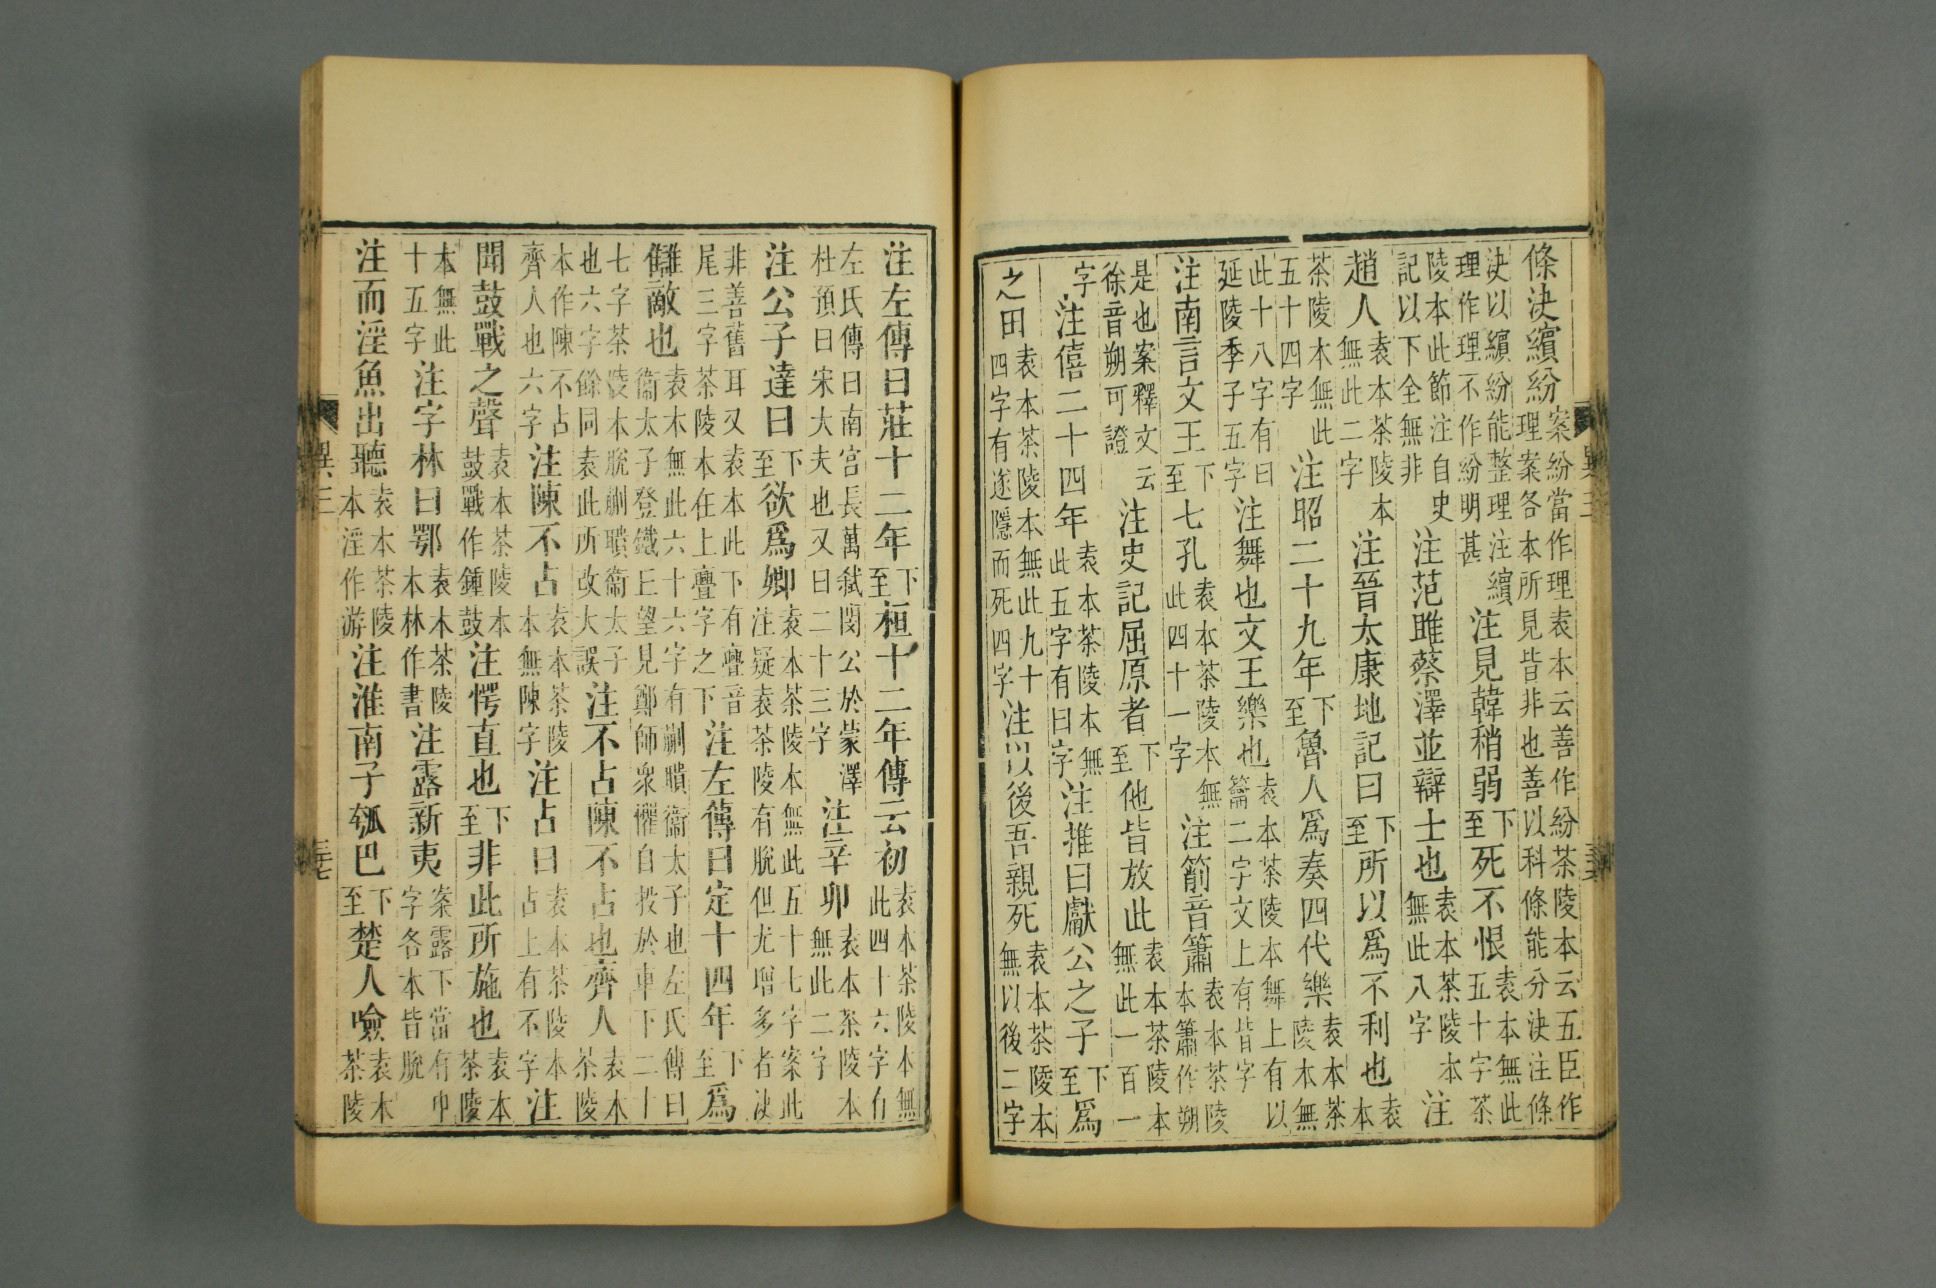 條決繽紛案紛當作理袁本云善作紛茶陵本云五臣作理案各本所見皆非也善以科條能分決注條
決以繽紛能整理注繽理作理不作紛明甚注見韓稍弱下至死不恨袁本無此五十字茶
陵本此節注自史記以下全無非注范雎蔡澤並辯士也袁本茶陵本無此八字注
趙人袁本茶陵本無此二字注晉太康地記曰下至所以爲不利也袁本
茶陵本無此五十四字注昭二十九年下至魯人爲奏四代樂袁本茶陵本無
此十八字有曰延陵季子五字注舞也文王樂也袁本茶陵本舞上有以籥二字文上有皆字
注南言文王下至七孔袁本茶陵本無此四十一字注箾音簫袁本茶陵本簫作朔
是也案釋文云徐音朔可證注史記屈原者下至他皆放此袁本茶陵本無此一百一
字注僖二十四年袁本茶陵本無此五字有曰字注推曰獻公之子下至爲
之田袁本茶陵本無此九十四字有遂隱而死四字注以後吾親死袁本茶陵本無以後二字
注左傳曰莊十二年下至桓十二年傳云初袁本茶陵本無此四十六字有
左氏傳曰南宮長萬弑閔公於蒙澤杜預曰宋大夫也又曰二十三字注辛卯袁本茶陵本無此二字
注公子達曰下至欲爲卿袁本茶陵本無此五十七字案此注疑袁茶陵有脫但尤增多者決
非善舊耳又袁本此下有亹音尾三字茶陵本在上亹字之下注左傳曰定十四年下至爲
讎敵也袁本無此六十六字有蒯聵衞太子也左氏傳曰衞太子登鐵上望見鄭師衆懼自投於車下二十
七字茶陵本脫蒯聵衞太子也六字餘同袁此所改大誤注不占陳不占也齊人袁本茶陵
本作陳不占齊人也六字注陳不占袁本茶陵本無陳字注占曰袁本茶陵本占上有不字注
聞鼓戰之聲袁本茶陵本鼓戰作鍾鼓注愕直也下至非此所施也袁本茶陵
本無此十五字注字林曰鄂袁本茶陵本林作書注露新夷案露下當有申字各本皆脫
注而淫魚出聽袁本茶陵本淫作游注淮南子瓠巴下至楚人噞袁本茶陵
異三
三七